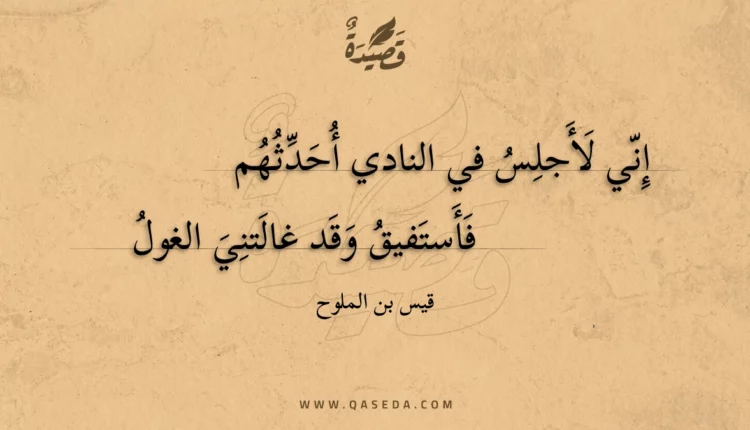 قَصِيدَةٌ
إِنّي لَأَجلِسُ في النادي أُحَدِّثُهُم
فَأَستَفيقُ وَقَد غالَتنِيَ الغولُ
قيس بن الملوح
WWW.QASEDA.COM